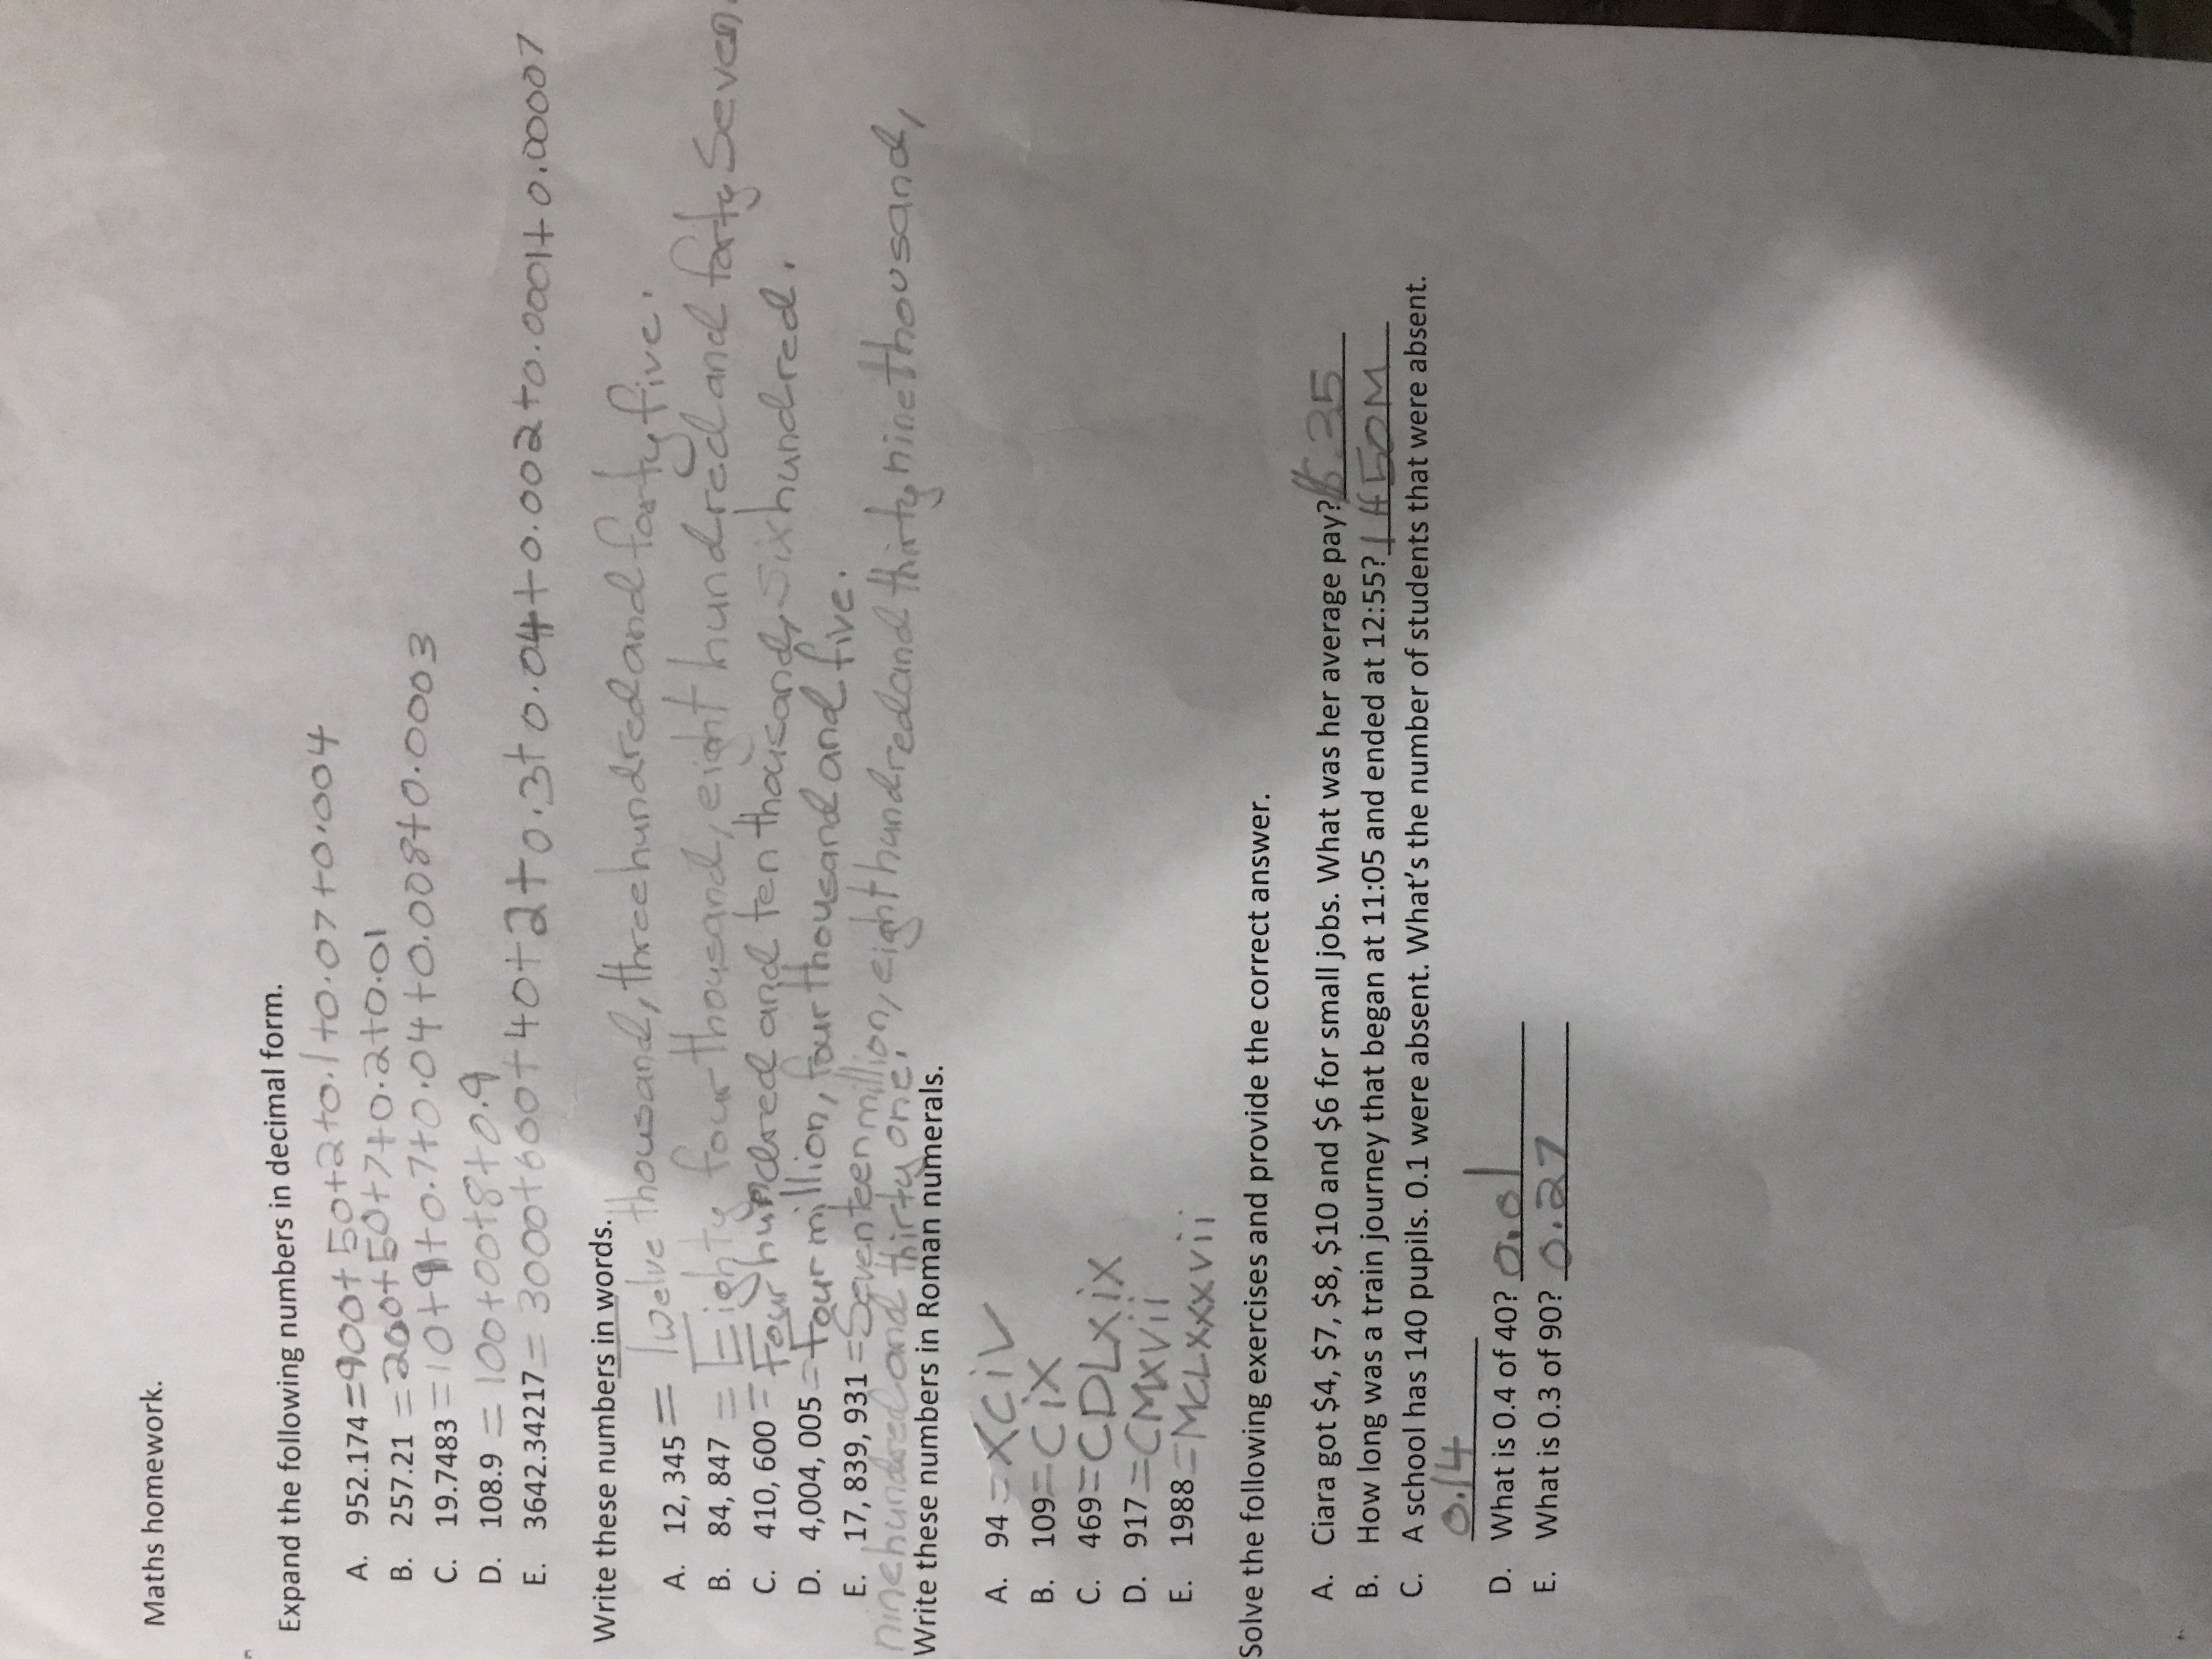 Maths homework.
Expand the following numbers in decimal form.
A. 952.174=900+50+2+0.1+0.07+0.004
B. 257.21=200+50+7+0.2+0.01
C. 19.7483=10+9+0.7+0.04+0.008+0.0003
D. 108.9=100+00+8+0.9
E. 3642.34217=3000+600+40+2+0.3+0.04+0.002+0.0001+0.00007
Write these numbers in words.
A. 12, 345= Twelve thousand, three hundred and forty five.
B. 84, 847= Eighty four thousand, eight hundred and forty Seven.
C. 410, 600= Four hundred and ten thousand, Six hundred.
D. 4,004, 005= Four million, four thousand and five.
E. 17, 839, 931= Seventeen million, eight hundred and thirty nine thousand,
nine hundred and thirty one.
Write these numbers in Roman numerals.
A. 94=XCiV
B. 109=CiX
C. 469=CDLXiX
D. 917=CMXVii
E. 1988=MCLXXXVii
Solve the following exercises and provide the correct answer.
A. Ciara got $4, $7, $8, $10 and $6 for small jobs. What was her average pay? $ 35
B. How long was a train journey that began at 11:05 and ended at 12:55? 1H 50M
C. A school has 140 pupils. 0.1 were absent. What's the number of students that were absent.
0.14
D. What is 0.4 of 40?
E. What is 0.3 of 90? 0.27